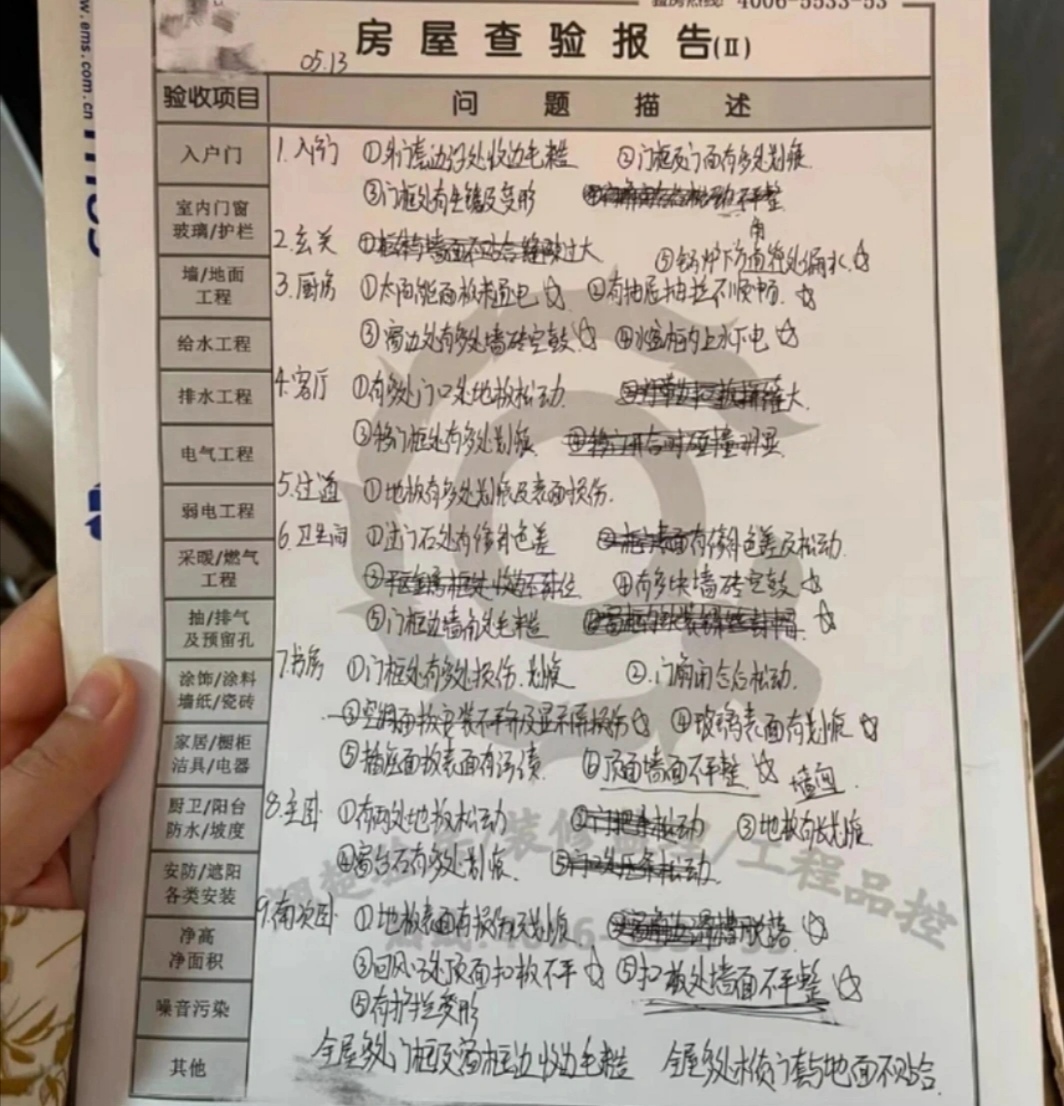 4006-5533-53
www.ems.com.cn
房屋查验报告(II)
05.13
验收项目 问题描述
入户门
室内门窗
玻璃/护栏
墙/地面
工程
给水工程
排水工程
电气工程
弱电工程
采暖/燃气
工程
抽/排气
及预留孔
涂饰/涂料
墙纸/瓷砖
家居/橱柜
洁具/电器
厨卫/阳台
防水/坡度
安防/遮阳
各类安装
净高
净面积
噪音污染
其他
1.入户门 ①外门套边沿处收边毛糙 ②门框及门面有多处划痕
③门框处有生锈及变形 不平整
2.玄关 ①柜体与墙面不贴合缝隙过大 ⑤锅炉下方角阀处漏水☆
3.厨房 ①太阳能面板未通电☆ ②有抽屉抽拉不顺畅☆
③窗边处有多处墙砖空鼓☆ ④水盆柜内上水下电☆
4.客厅 ①有多处门口处地板松动 大
③移门框处有多处划痕 ④移门开合时碰撞明显
5.过道 ①地板有多处划痕及表面损伤.
6.卫生间 ①进门石处有修补色差 表面有修补色差及松动
④有多块墙砖空鼓☆
⑤门框边墙角处毛糙 ☆
7.书房 ①门框处有多处损伤.划痕 ②门扇闭合后松动.
③空调面板安装不平齐及显示屏损伤☆ ④玻璃表面有划痕☆
⑤插座面板表面有污渍. ⑥顶面墙面不平整☆ 墙面
8.主卧 ①有两处地板松动 ②门把手松动 ③地板有长划痕
④窗台石有多处划痕. ⑤门口处压条松动
9.南次卧 ①地板表面有损伤及划痕 脱落☆
③回风口处顶面扣板不平☆ ⑤扣板处墙面不平整☆
⑤有护栏变形
全屋多处门框及窗框边收边毛糙 全屋多处木质门套与地面不贴合.
装修管理/工程品控